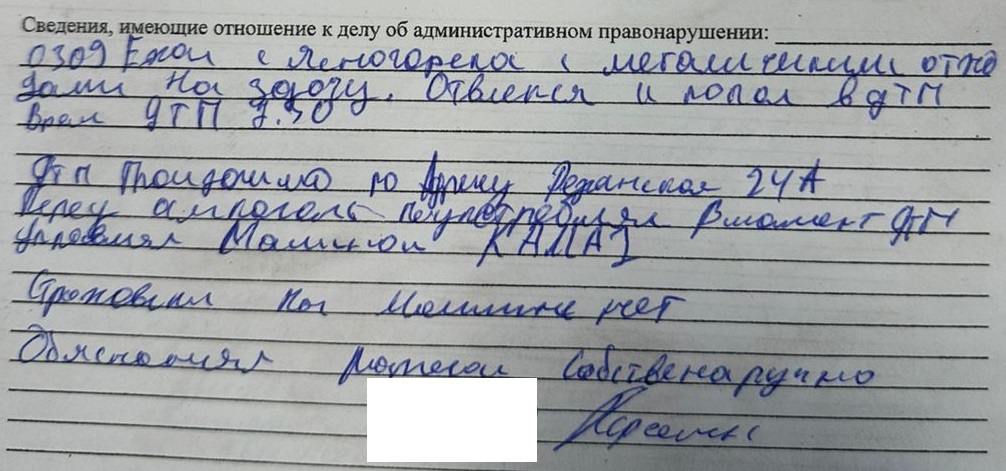 Сведения, имеющие отношение к делу об административном правонарушении:
0309 Ехал с Ясногорска с металическими отхо
дами На здачу. Отвлекся и попал в ДТП
Время ДТП 7.30
ДТП Произошло по Адресу 24А
Перед алкоголь не употреблял В момент ДТП
управлял Машиной КАМАЗ
Страховки на Машине нет
Обяснения написал Собственаручно